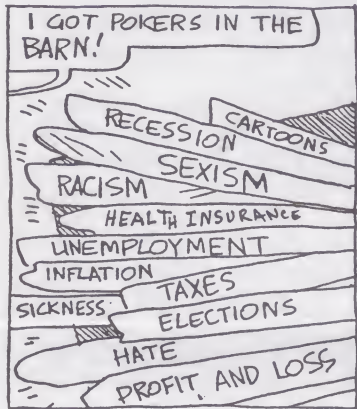 I GOT POKERS IN THE
BARN!
RECESSION
CARTOONS
SEXISM
RACISM
HEALTH INSURANCE
UNEMPLOYMENT
INFLATION
TAXES
SICKNESS
ELECTIONS
HATE
PROFIT AND LOSS